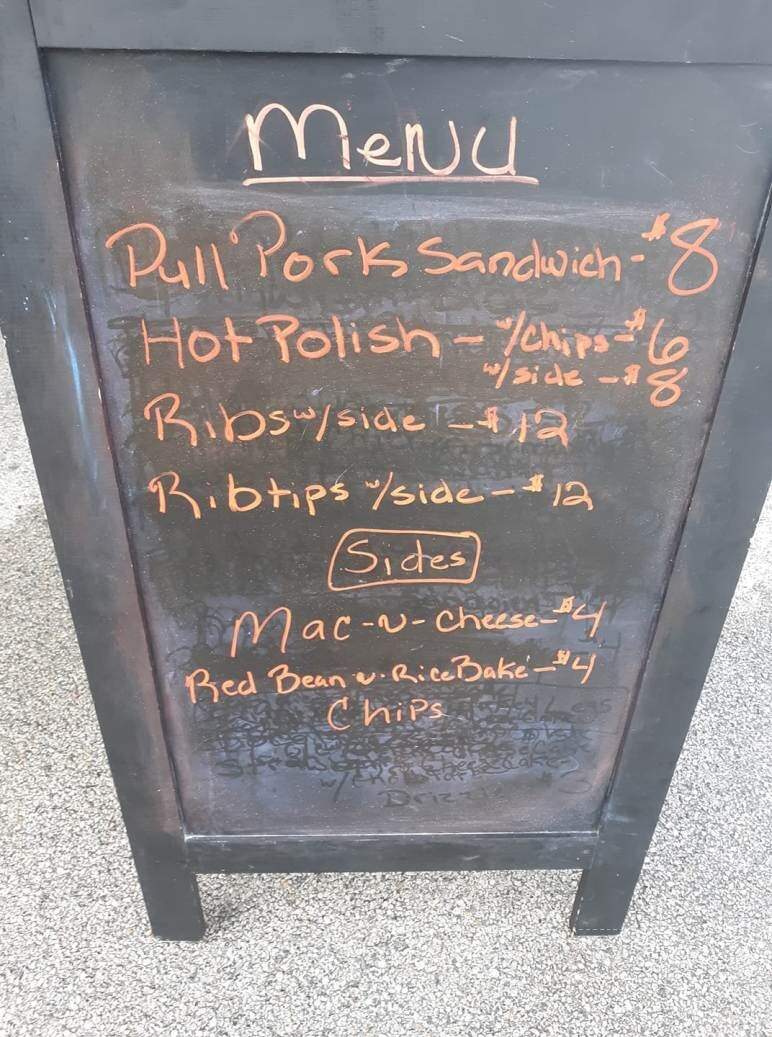 Menu
Pull Pork Sandwich - $8
Hot Polish - w/chips - $6
w/side - $8
Ribs w/side - $12
Ribtips w/side - $12
Sides
Mac-N-Cheese - $4
Red Bean N. Rice Bake - $4
Chips
Drizzle